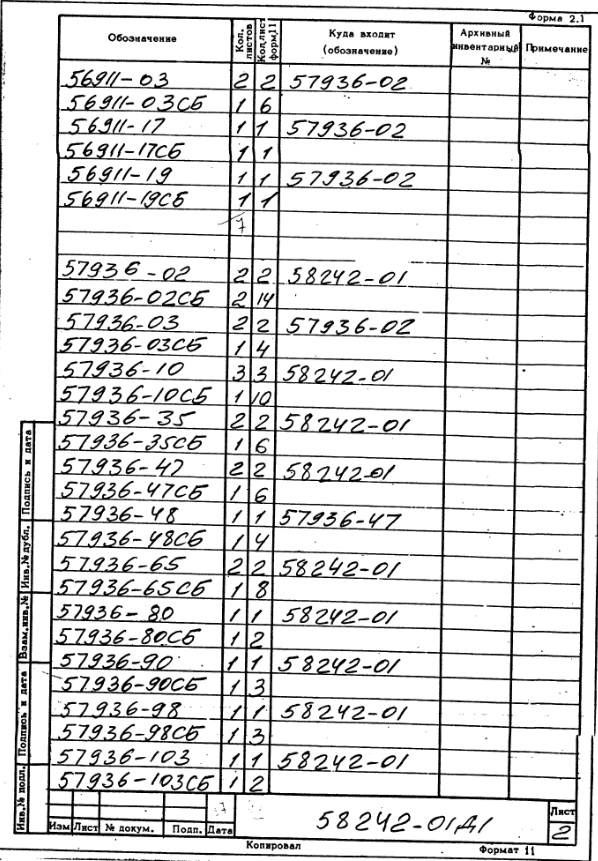 Форма 2.1
Обозначение Кол. листов Кол.лист. форм.11 Куда входит (обозначение) Архивный инвентарный № Примечание
56911-03 2 2 57936-02
56911-03СБ 1 6
56911-17 1 1 57936-02
56911-17СБ 1 1
56911-19 1 1 57936-02
56911-19СБ 1 1
7
57936-02 2 2 58242-01
57936-02СБ 2 14
57936-03 2 2 57936-02
57936-03СБ 1 4
57936-10 3 3 58242-01
57936-10СБ 1 10
57936-35 2 2 58242-01
57936-35СБ 1 6
57936-47 2 2 58242-01
57936-47СБ 1 6
57936-48 1 1 57936-47
57936-48СБ 1 4
57936-65 2 2 58242-01
57936-65СБ 1 8
57936-80 1 1 58242-01
57936-80СБ 1 2
57936-90 1 1 58242-01
57936-90СБ 1 3
57936-98 1 1 58242-01
57936-98СБ 1 3
57936-103 1 1 58242-01
57936-103СБ 1 2
Подпись и дата
Инв.№ дубл.
Взам.инв.№
Подпись и дата
Инв.№ подл.
Изм Лист № докум. Подп. Дата
58242-01Д1
Лист
2
Копировал Формат 11